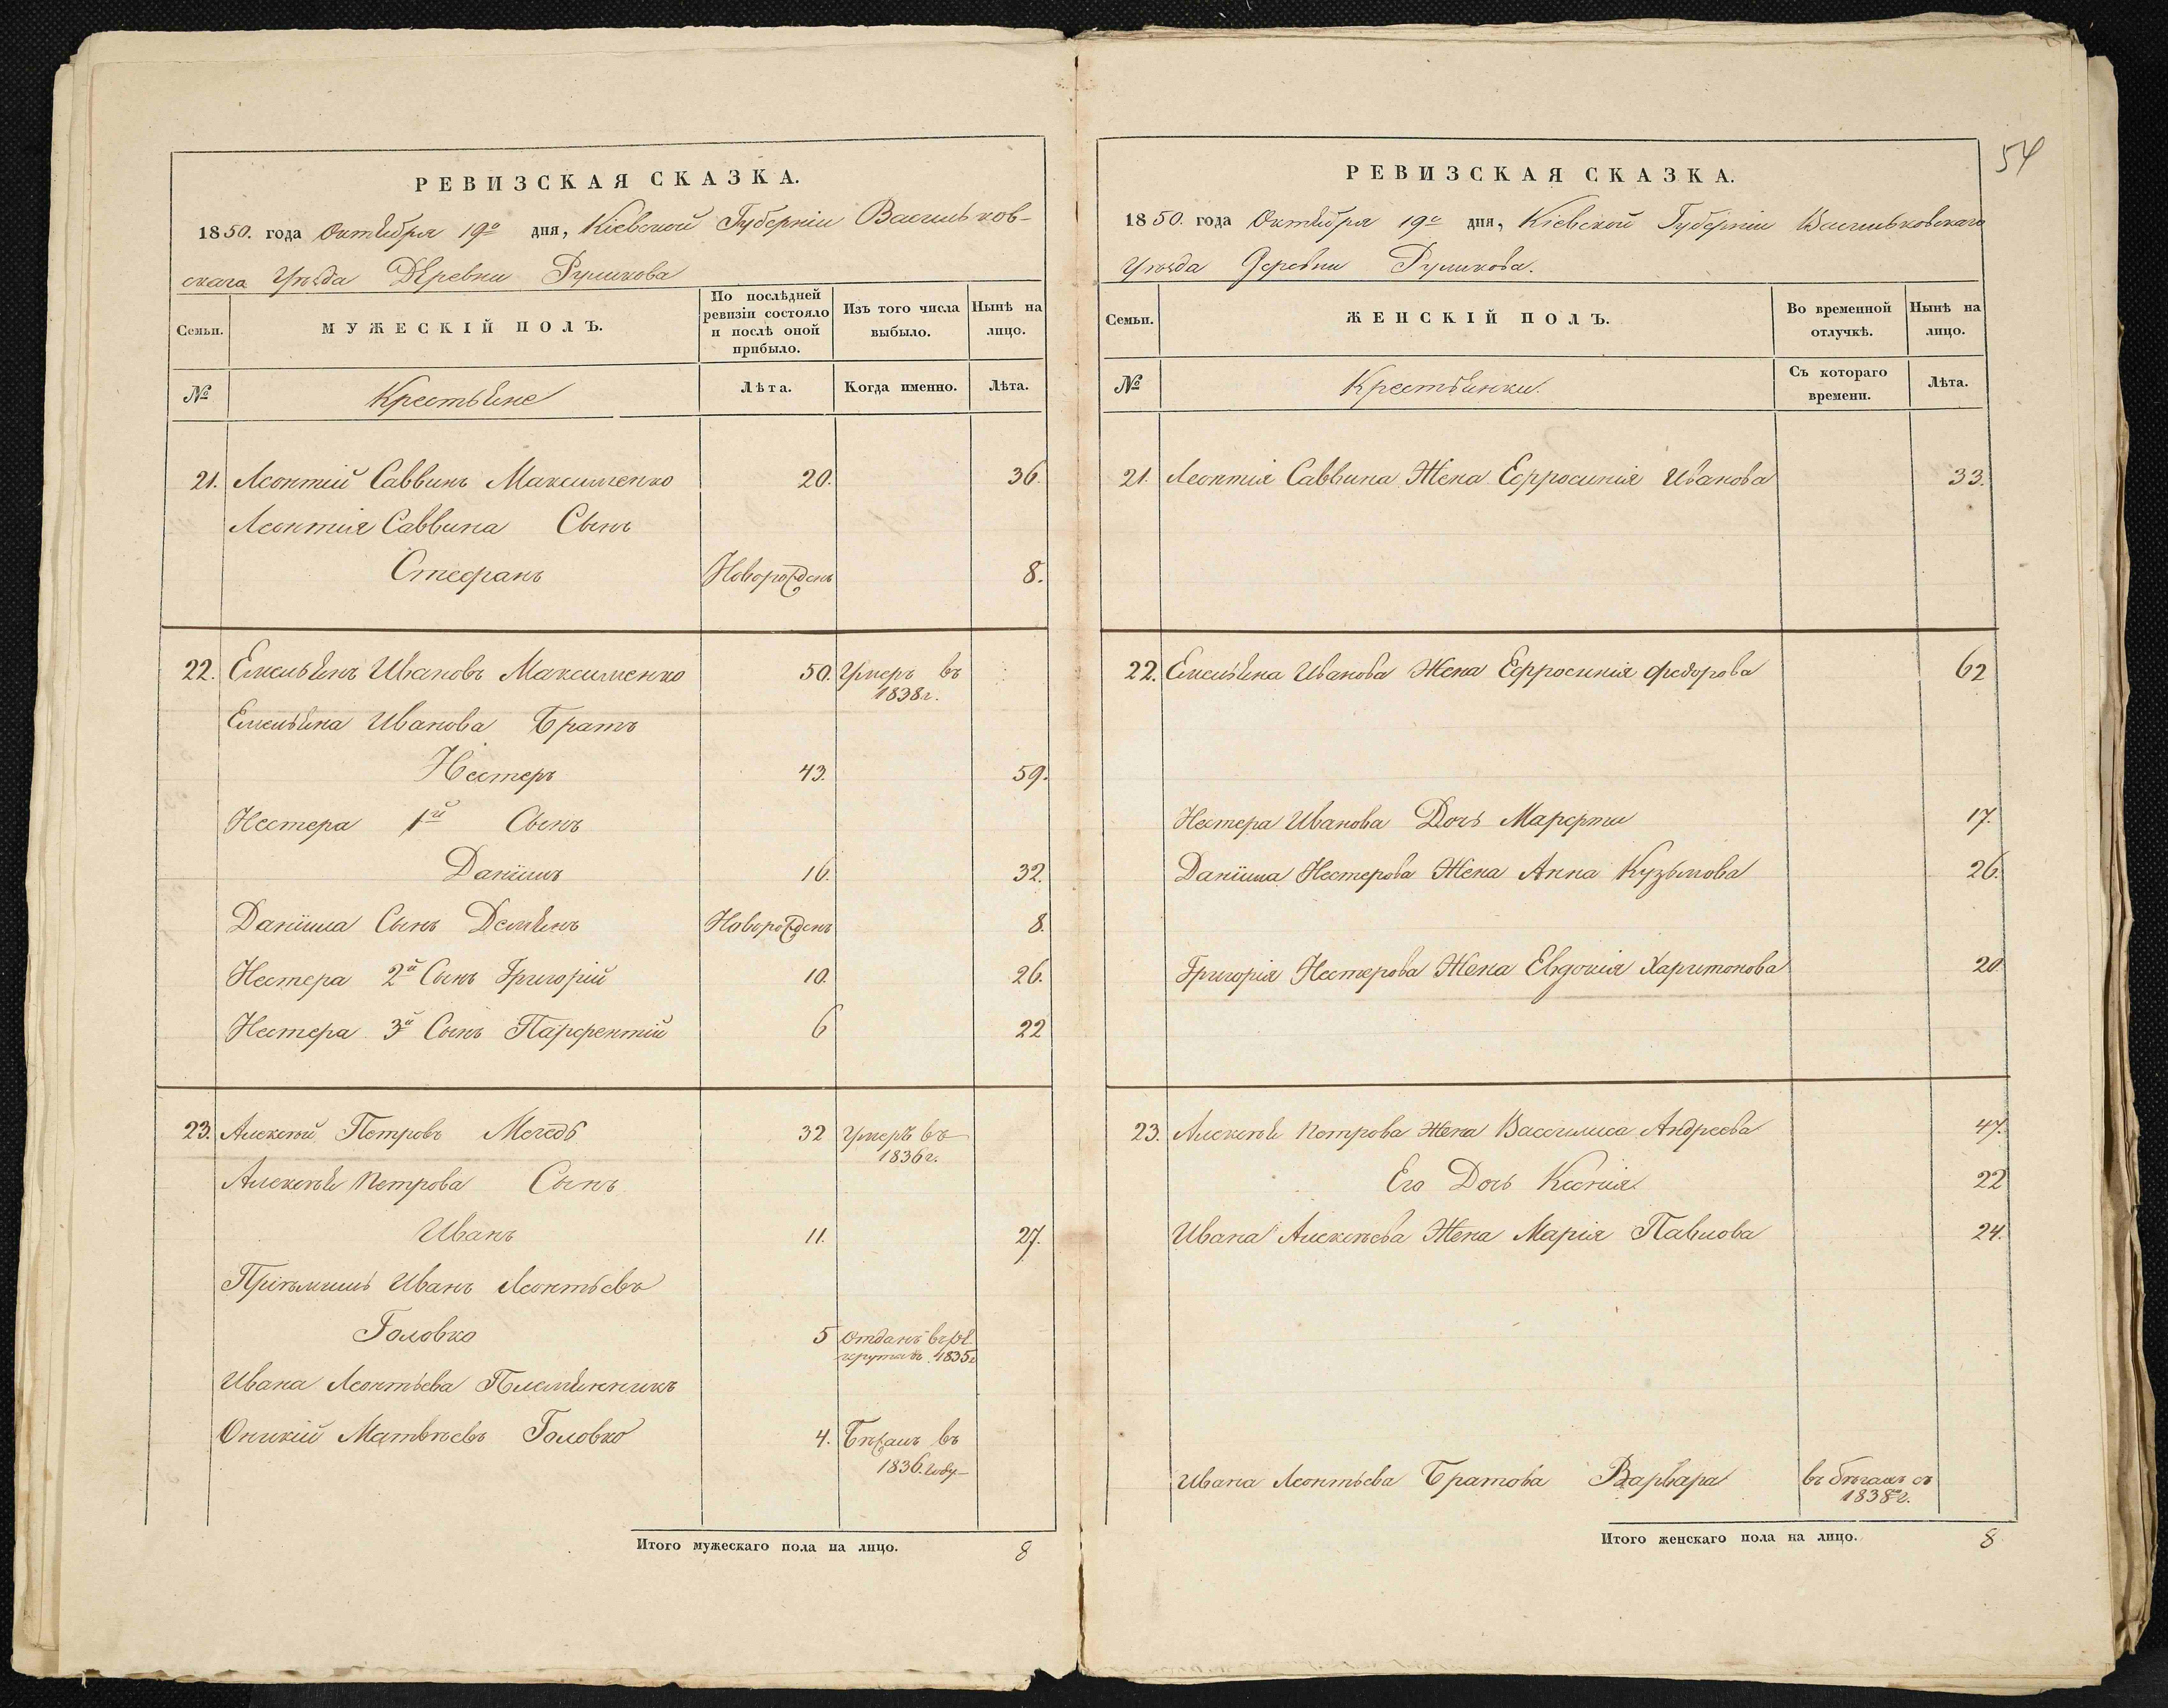 РЕВИЗСКАЯ СКАЗКА.
1850. года Октября 19го дня, Кіевской Губерніи Васильков-
скага Уѣзда Деревни Руликова
Семьи.
МУЖЕСКІЙ ПОЛЪ.
По послѣдней ревизіи состояло и послѣ оной прибыло.
Изъ того числа выбыло.
Нынѣ на лицо.
№
Крестьяне
Лѣта.
Когда именно.
Лѣта.
21. Леонтій Саввинъ Максименко 20. 36.
Леонтія Саввина Сынъ
Стефанъ Новорожденъ 8.
22. Емельянъ Ивановъ Максименко 50. Умеръ въ
1838 г.
Емельяна Иванова Братъ
Нестеръ 43. 59.
Нестера 1й Сынъ
Даніилъ 16. 32.
Даніила Сынъ Демянъ Новорожденъ 8.
Нестера 2й Сынъ Григорій 10. 26.
Нестера 3й Сынъ Парфентій 6 22
23. Алексѣй Петровъ 32 Умеръ въ
1836 г.
Алексѣя Петрова Сынъ
Иванъ 11. 27.
Пріемышъ Иванъ Леонтьевъ
Головко 5 отданъ въ ре
круты въ 1835 г
Ивана Леонтьева Племянникъ
Оникій Матвѣевъ Головко 4. Бѣжалъ въ
1836. году
Итого мужескаго пола на лицо. 8
54
РЕВИЗСКАЯ СКАЗКА.
1850. года Октября 19го дня, Кіевской Губерніи Васильковскаго
Уѣзда Деревни Руликова.
Семьи.
ЖЕНСКІЙ ПОЛЪ.
Во временной отлучкѣ.
Нынѣ на лицо.
№
Крестьянки.
Съ котораго времени.
Лѣта.
21. Леонтія Саввина Жена Ефросинія Иванова 33.
22. Емельяна Иванова Жена Ефросинія Федорова 62
Нестера Иванова Дочь Марфти 17.
Даніила Нестерова Жена Анна Кузьмова 26.
Григорія Нестерова Жена Евдокія Харитонова 20
23. Алексѣя Петрова Жена Василиса Андреева 47.
Его Дочь Ксенія 22
Ивана Алексѣева Жена Марія Павлова 24.
Ивана Леонтьева Братова Варвара въ бѣгахъ съ
1838го г.
Итого женскаго пола на лицо. 8